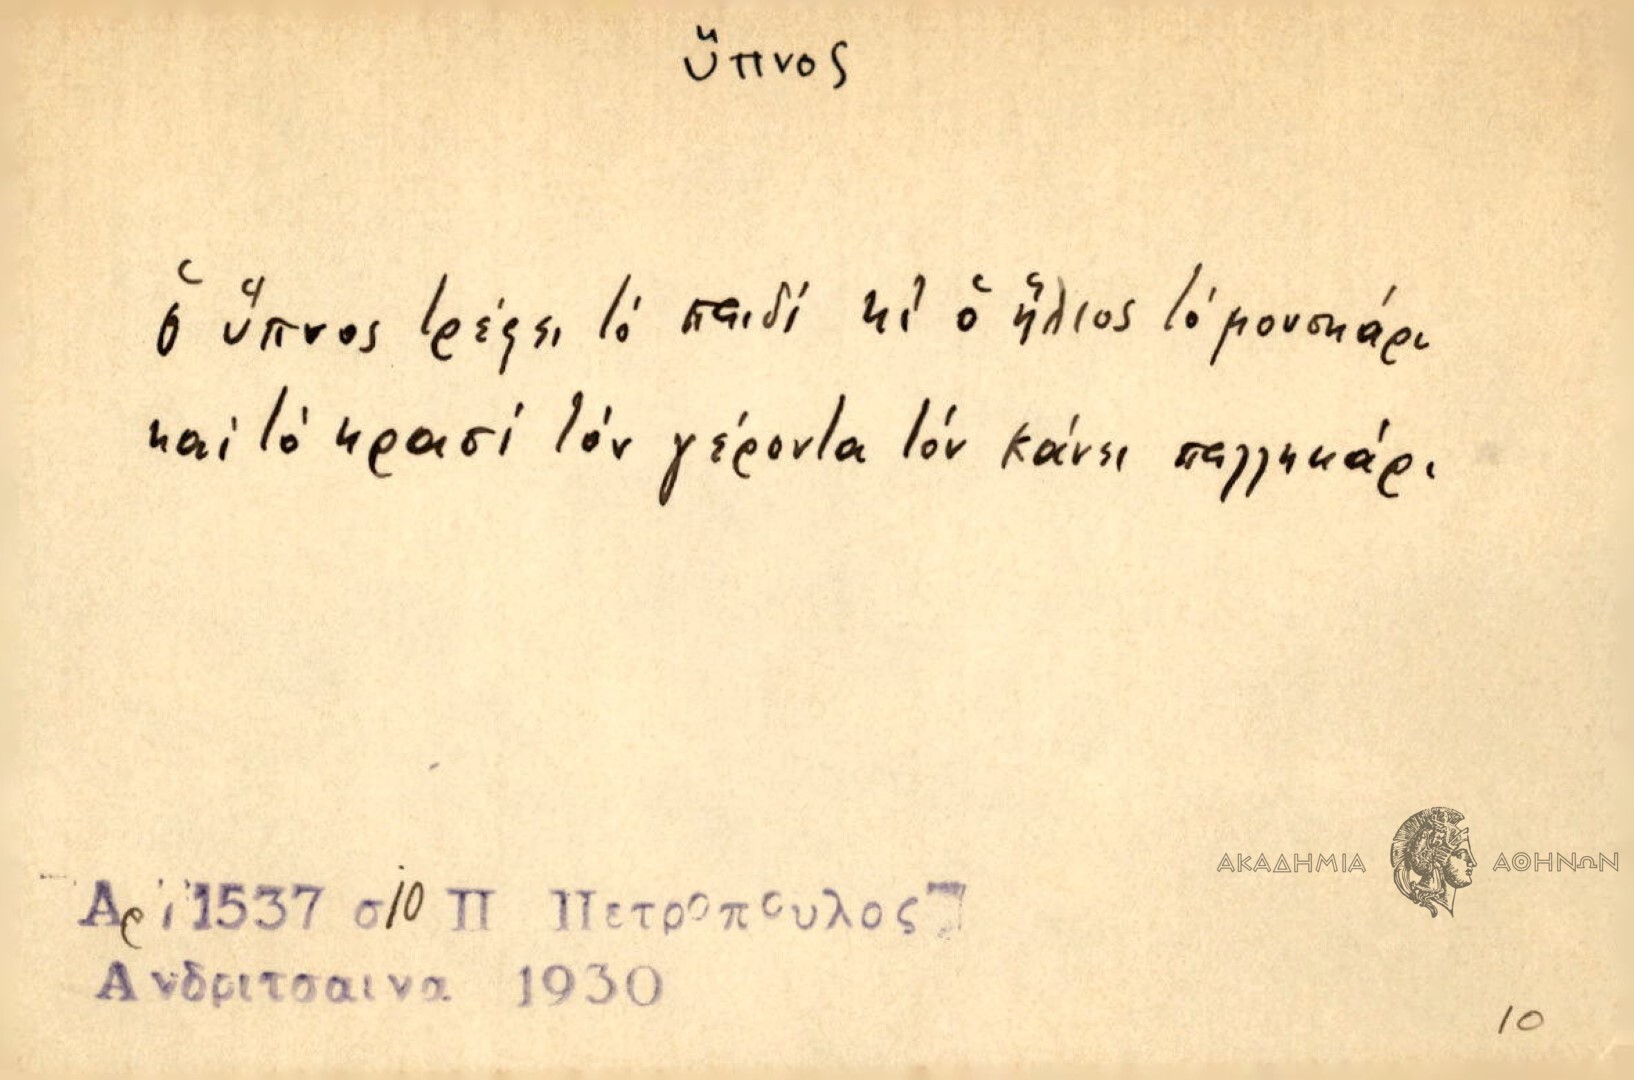 ὕπνος
ὁ ὕπνος τρέφει τό παιδί κι ὁ ἥλιος τό μουσκάρι
καί τό κρασί τόν γέροντα τόν κάνει παλληκάρι
ΑΚΑΔΗΜΙΑ ΑΘΗΝΩΝ
Αρ 1537 σ 10 Π Πετροπουλος
Ανδριτσαινα 1930
10